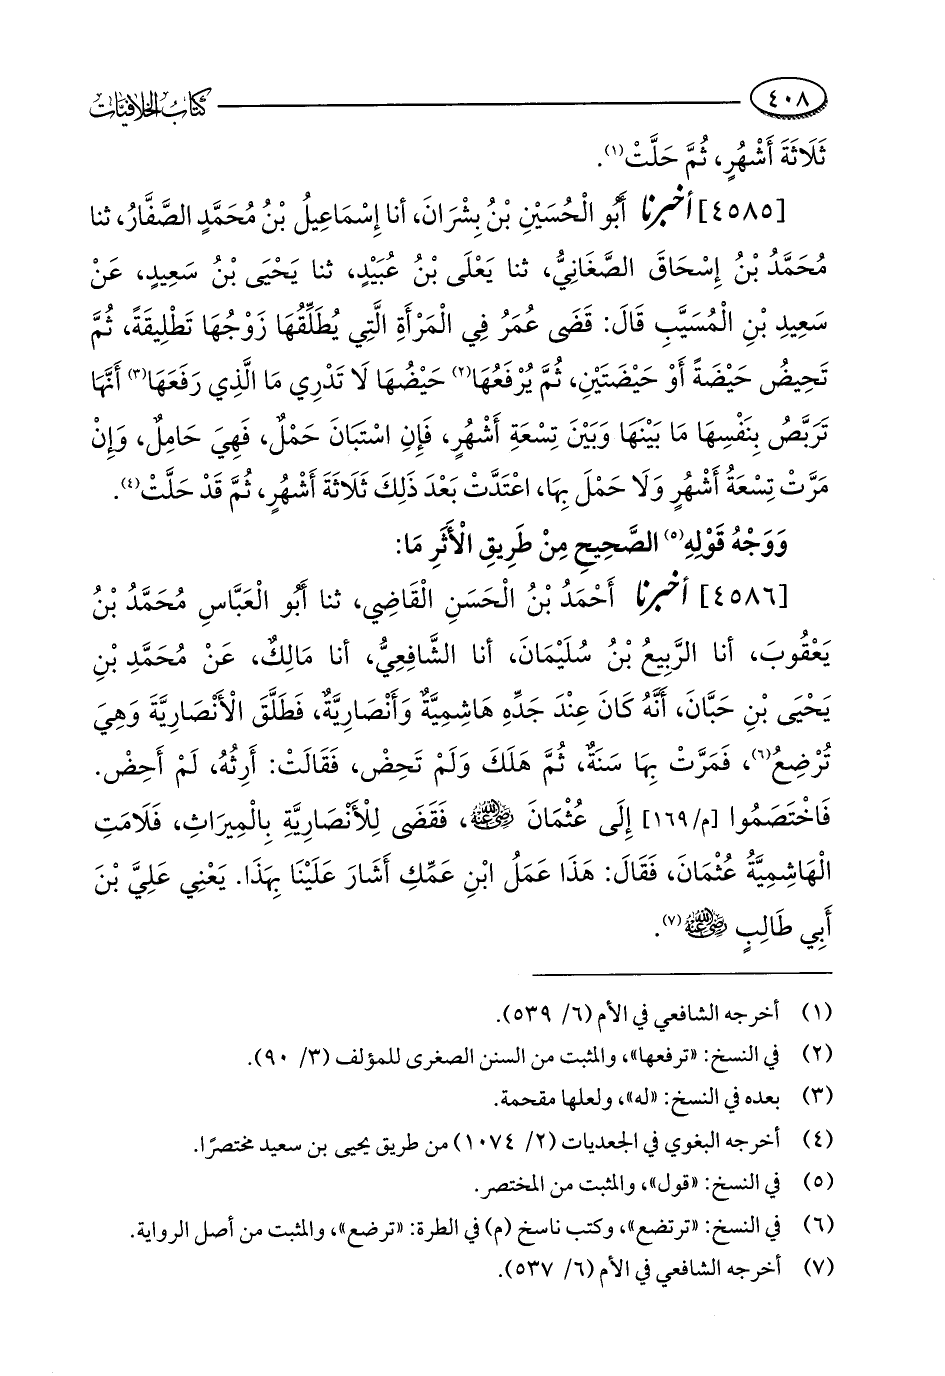 ٤٠٨ كتاب الخلافيات
ثَلَاثَةَ أَشْهُرٍ، ثُمَّ حَلَّتْ(١).
[٤٥٨٥] أخبرنا أَبُو الْحُسَيْنِ بْنُ بِشْرَانَ، أنا إِسْمَاعِيلُ بْنُ مُحَمَّدٍ الصَّفَّارُ، ثنا
مُحَمَّدُ بْنُ إِسْحَاقَ الصَّغَانِيُّ، ثنا يَعْلَى بْنُ عُبَيْدٍ، ثنا يَحْيَى بْنُ سَعِيدٍ، عَنْ
سَعِيدِ بْنِ الْمُسَيَّبِ قَالَ: قَضَى عُمَرُ فِي الْمَرْأَةِ الَّتِي يُطَلِّقُهَا زَوْجُهَا تَطْلِيقَةً، ثُمَّ
تَحِيضُ حَيْضَةً أَوْ حَيْضَتَيْنِ، ثُمَّ يُرْفَعُهَا(٢) حَيْضُهَا لَا تَدْرِي مَا الَّذِي رَفَعَهَا(٣) أَنَّهَا
تَرَبَّصُ بِنَفْسِهَا مَا بَيْنَهَا وَبَيْنَ تِسْعَةِ أَشْهُرٍ، فَإِنِ اسْتَبَانَ حَمْلٌ، فَهِيَ حَامِلٌ، وَإِنْ
مَرَّتْ تِسْعَةُ أَشْهُرٍ وَلَا حَمْلَ بِهَا، اعْتَدَّتْ بَعْدَ ذَلِكَ ثَلَاثَةَ أَشْهُرٍ، ثُمَّ قَدْ حَلَّتْ(٤).
وَوَجْهُ قَوْلِهِ(٥) الصَّحِيحِ مِنْ طَرِيقِ الْأَثَرِ مَا:
[٤٥٨٦] أخبرنا أَحْمَدُ بْنُ الْحَسَنِ الْقَاضِي، ثنا أَبُو الْعَبَّاسِ مُحَمَّدُ بْنُ
يَعْقُوبَ، أنا الرَّبِيعُ بْنُ سُلَيْمَانَ، أنا الشَّافِعِيُّ، أنا مَالِكٌ، عَنْ مُحَمَّدِ بْنِ
يَحْيَى بْنِ حَبَّانَ، أَنَّهُ كَانَ عِنْدَ جَدِّهِ هَاشِمِيَّةٌ وَأَنْصَارِيَّةٌ، فَطَلَّقَ الْأَنْصَارِيَّةَ وَهِيَ
تُرْضِعُ(٦)، فَمَرَّتْ بِهَا سَنَةٌ، ثُمَّ هَلَكَ وَلَمْ تَحِضْ، فَقَالَتْ: أَرِثُهُ، لَمْ أَحِضْ.
فَاخْتَصَمُوا [م/١٦٩] إِلَى عُثْمَانَ رضي الله عنه، فَقَضَى لِلْأَنْصَارِيَّةِ بِالْمِيرَاثِ، فَلَامَتِ
الْهَاشِمِيَّةُ عُثْمَانَ، فَقَالَ: هَذَا عَمَلُ ابْنِ عَمِّكِ أَشَارَ عَلَيْنَا بِهَذَا. يَعْنِي عَلِيَّ بْنَ
أَبِي طَالِبٍ رضي الله عنه(٧).
(١) أخرجه الشافعي في الأم (٦/ ٥٣٩).
(٢) في النسخ: «ترفعها»، والمثبت من السنن الصغرى للمؤلف (٣/ ٩٠).
(٣) بعده في النسخ: «له»، ولعلها مقحمة.
(٤) أخرجه البغوي في الجعديات (٢/ ١٠٧٤) من طريق يحيى بن سعيد مختصرًا.
(٥) في النسخ: «قول»، والمثبت من المختصر.
(٦) في النسخ: «ترتضع»، وكتب ناسخ (م) في الطرة: «ترضع»، والمثبت من أصل الرواية.
(٧) أخرجه الشافعي في الأم (٦/ ٥٣٧).